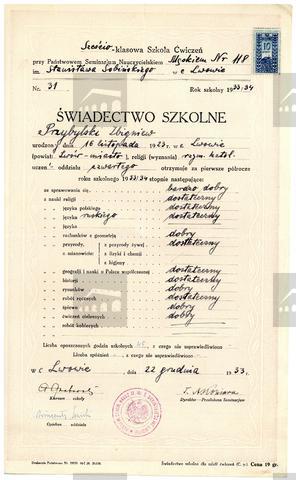 Sześcio-klasowa Szkoła Ćwiczeń
przy Państwowem Seminarjum Nauczycielskiem Męskiem Nr
im. Stanisława Sobińskiego w e Lwowie
Nr. 31 Rok szkolny 1933/34
ŚWIADECTWO SZKOLNE
Przybylski Zbigniew
urodzony dnia 16 listopada 1923 r. w e Lwowie
(powiat: Lwów-miasto), religji (wyznania) rzym. katol.
uczeń oddziału czwartego otrzymuje za pierwsze półrocze
roku szkolnego 1933/34 stopnie następujące:
za sprawowanie się bardzo dobry
z nauki religji dostateczny
„ języka polskiego dostateczny
„ języka ruskiego dostateczny
„ języka
„ rachunków z geometrją dobry
„ przyrody, z przyrody żywej dostateczny
a mianowicie: z fizyki i chemji
z higjeny
„ geografji i nauki o Polsce współczesnej dostateczny
„ historji dostateczny
„ rysunków dobry
„ robót ręcznych dostateczny
„ śpiewu dobry
„ ćwiczeń cielesnych dobry
„ robót kobiecych
Liczba opuszczonych godzin szkolnych z czego nie usprawiedliwiono
Liczba spóźnień z czego nie usprawiedliwiono
W e Lwowie, dnia 22 grudnia 1933.
Kierown. szkoły Dyrektor - Przełożona Seminarjum
Opiekun oddziału
Świadectwo szkolne dla szkół ćwiczeń Cena 19 gr.